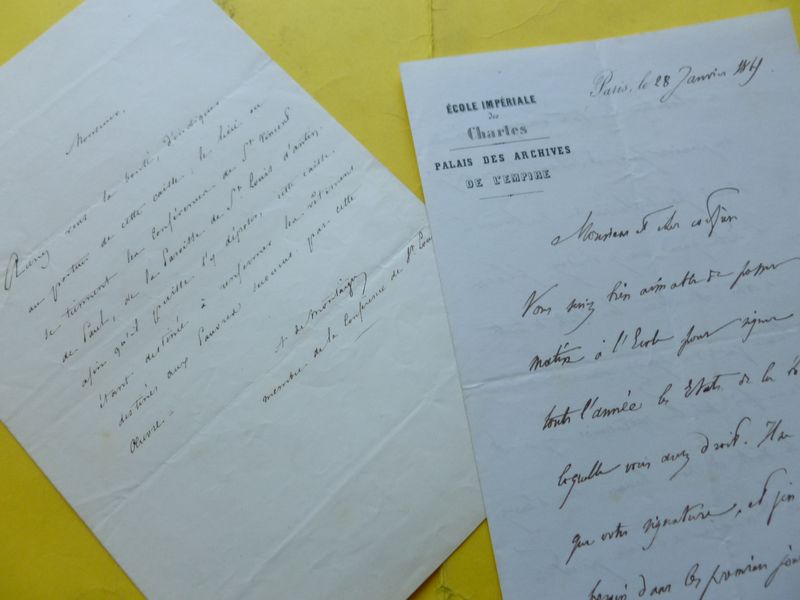 Monsieur,
Auriez vous la bonté, d'indiquer
au porteur de cette caisse, le lieu ou
se tiennent les Conférences de St Vincent
de Paul, de la Paroisse de St Louis d'antin.
afin qu'il puisse s'y déposer, cette caisse.
étant destinée à renfermer les vêtements
destinés aux Pauvres secourus par cette
Oeuvre. =
de Montaigu
membre de la Conférence de St Louis
ÉCOLE IMPÉRIALE
des
Chartes
PALAIS DES ARCHIVES
DE L'EMPIRE
Paris, le 28 Janvier 1869
Monsieur et cher confrère
Vous seriez bien aimable de passer
à l'Ecole pour signer
toute l'année les Etats de la
laquelle vous avez droit.
que votre signature, et j'en
besoin dans les premiers jou